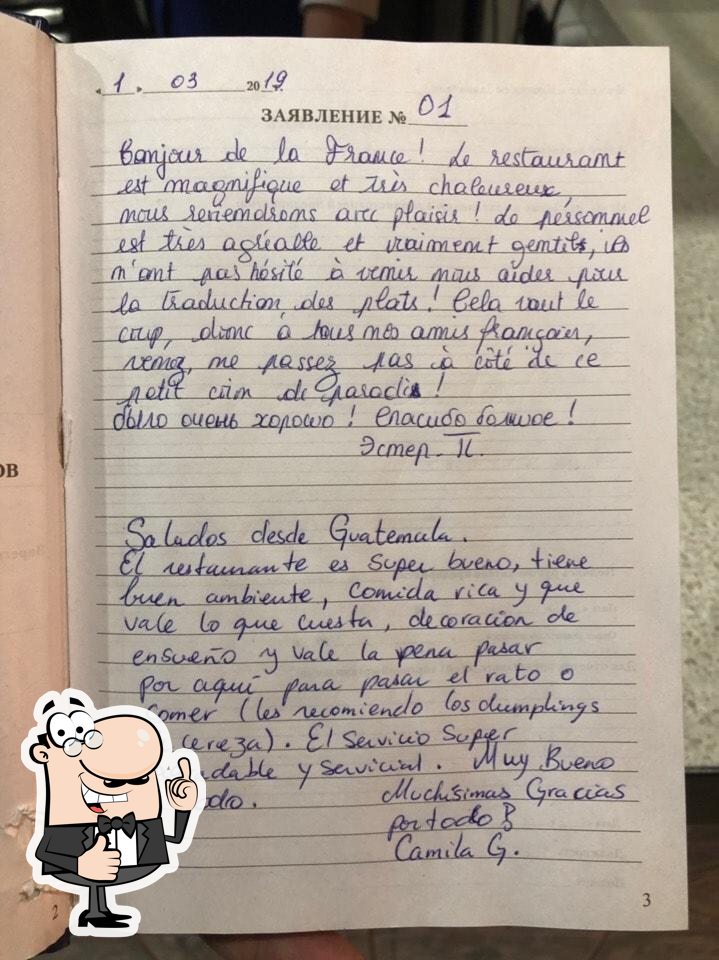 « 1 » 03 2019
ЗАЯВЛЕНИЕ № 01
Bonjour de la France! Le restaurant
est magnifique et très chaleureux,
nous reviendrons avec plaisir! Le personnel
est très agréable et vraiment gentils, ils
n'ont pas hésité à venir nous aider pour
la traduction des plats! Cela vaut le
coup, donc à tous mes amis français,
venez, ne passez pas à côté de ce
petit coin de paradis!
было очень хорошо! Спасибо большое!
Эстер. П.
Saludos desde Guatemala.
El restaurante es super bueno, tiene
buen ambiente, comida rica y que
vale lo que cuesta, decoracion de
ensueño y vale la pena pasar
por aquí para pasar el rato o
comer (les recomiendo los dumplings
cereza). El servicio super
dable y servicial. Muy Bueno
odo. Muchísimas Gracias
por todo
Camila G.
ОВ
2
3